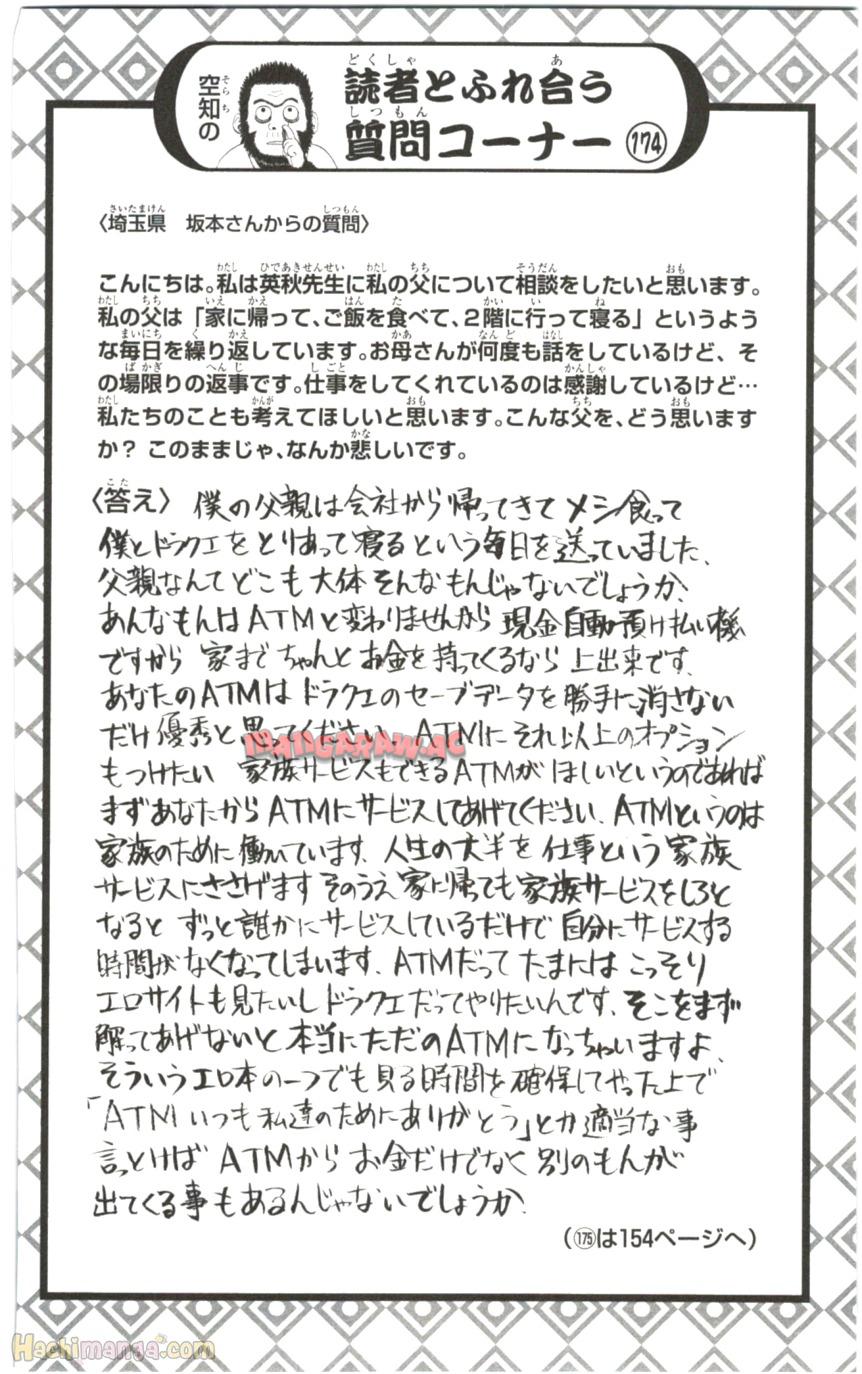 空知の
読者とふれ合う
質問コーナー 174
〈埼玉県　坂本さんからの質問〉
こんにちは。私は英秋先生に私の父について相談をしたいと思います。
私の父は「家に帰って、ご飯を食べて、2階に行って寝る」というよう
な毎日を繰り返しています。お母さんが何度も話をしているけど、そ
の場限りの返事です。仕事をしてくれているのは感謝しているけど…
私たちのことも考えてほしいと思います。こんな父を、どう思います
か？ このままじゃ、なんか悲しいです。
〈答え〉 僕の父親は会社から帰ってきてメシ食って
僕とドラクエをとりあって寝るという毎日を送っていました、
父親なんてどこも大体そんなもんじゃないでしょうか、
あんなもんはATMと変わりませんから 現金自動預け払い機
ですから 家までちゃんとお金を持ってくるなら上出来です、
あなたのATMはドラクエのセーブデータを勝手に消さない
だけ優秀と思ってください、ATMにそれ以上のオプション
もつけたい 家族サービスもできるATMがほしいというのであれば
まずあなたからATMにサービスしてあげてください、ATMというのは
家族のために働いています、人生の大半を仕事という家族
サービスにささげます そのうえ家に帰っても家族サービスをしろと
なると ずっと誰かにサービスしているだけで自分にサービスする
時間がなくなってしまいます、ATMだってたまにはこっそり
エロサイトも見たいしドラクエだってやりたいんです、そこをまず
解ってあげないと本当にただのATMになっちゃいますよ、
そういうエロ本の一つでも見る時間を確保してやった上で
「ATM いつも私達のためにありがとう」とか適当な事
言っとけば ATMからお金だけでなく別のもんが
出てくる事もあるんじゃないでしょうか、
（175は154ページへ）
MANGARAW.AC
Hachimanga.com